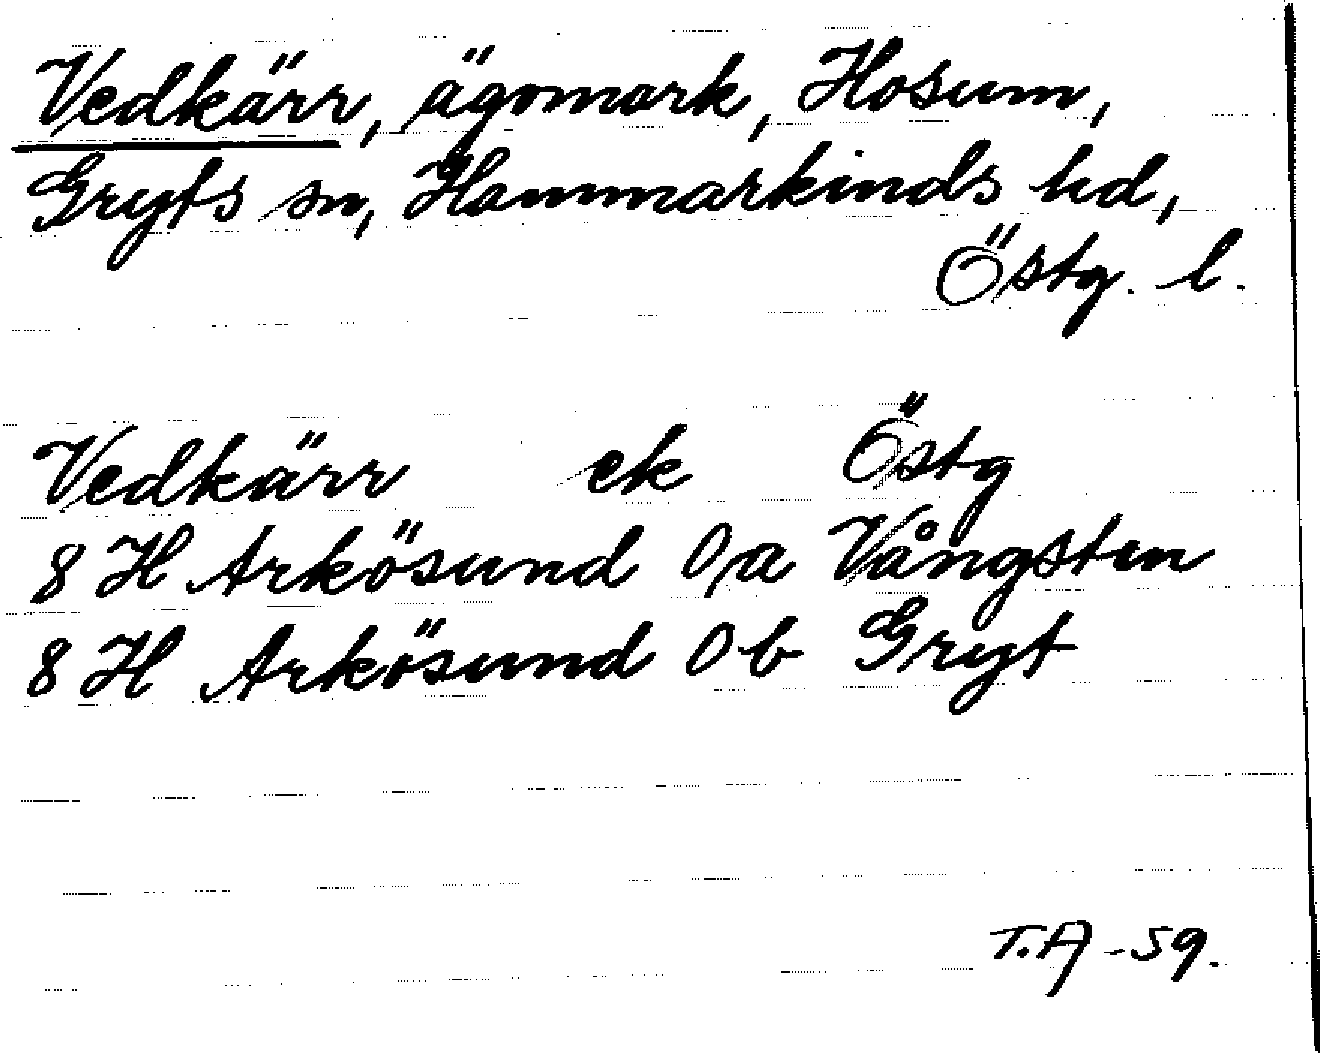 Vedkärr, ägomark, Hosum,
Gryts sn, Hammarkinds hd,
Östg. l.
Vedkärr ek Östg
8 H Arkösund 0 a Vångsten
8 H Arkösund 0 b Gryt
T.A -59.